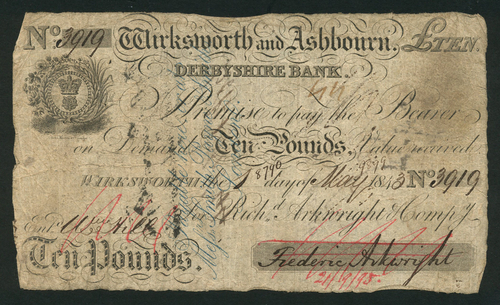 No. 3919 Wirksworth and Ashbourn. £TEN.
DERBYSHIRE BANK.
I Promise to pay the Bearer
on Demand Ten Pounds, Value received
8790
WIRKSWORTH the 1 day of May 1843 No 3919
for Rich.d Arkwright & Comp.y
Ent.d
Ten Pounds. Frederic Arkwright
21/9/98